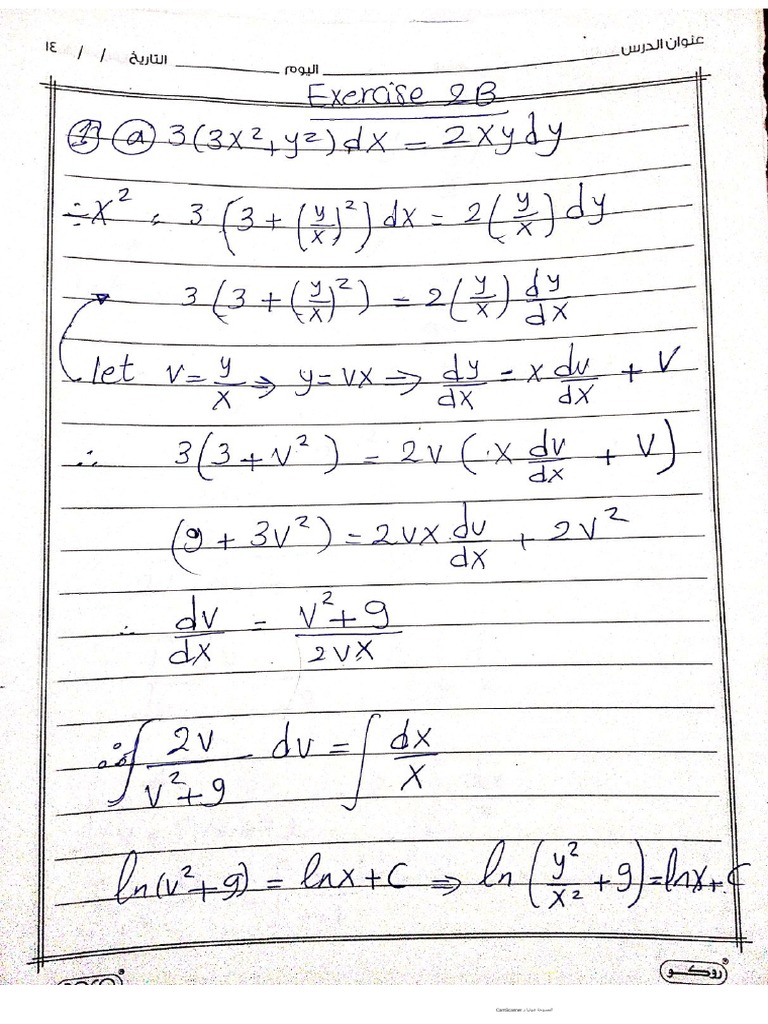 عنوان الدرس ________ اليوم ________ التاريخ / / ١٤
Exercise 2B
① ⓐ 3(3x²+y²)dx = 2xydy
÷x² , 3(3+(y/x)²)dx = 2(y/x)dy
3(3+(y/x)²) = 2(y/x) dy/dx
let v=y/x ⇒ y=vx ⇒ dy/dx = x dv/dx + v
∴ 3(3+v²) = 2v(x dv/dx + v)
(9+3v²) = 2vx dv/dx + 2v²
∴ dv/dx = (v²+9)/(2vx)
∴ ∫ 2v/(v²+9) dv = ∫ dx/x
ln(v²+9) = lnx+c ⇒ ln(y²/x² +9)=lnx+c
روكو
CamScanner